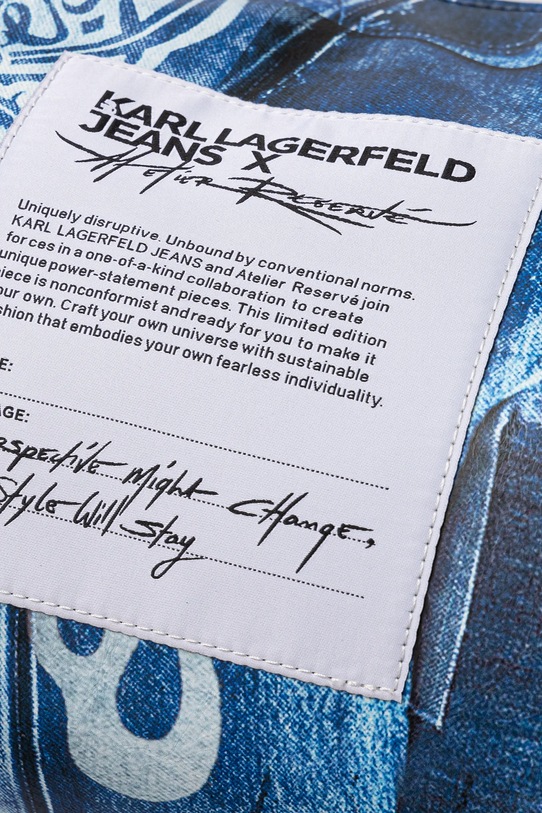 KARL LAGERFELD
JEANS X
Atelier Reservé
Uniquely disruptive. Unbound by conventional norms.
KARL LAGERFELD JEANS and Atelier Reservé join
forces in a one-of-a-kind collaboration to create
unique power-statement pieces. This limited edition
piece is nonconformist and ready for you to make it
our own. Craft your own universe with sustainable
shion that embodies your own fearless individuality.
E:
AGE:
rspective Might Change,
Style Will Stay